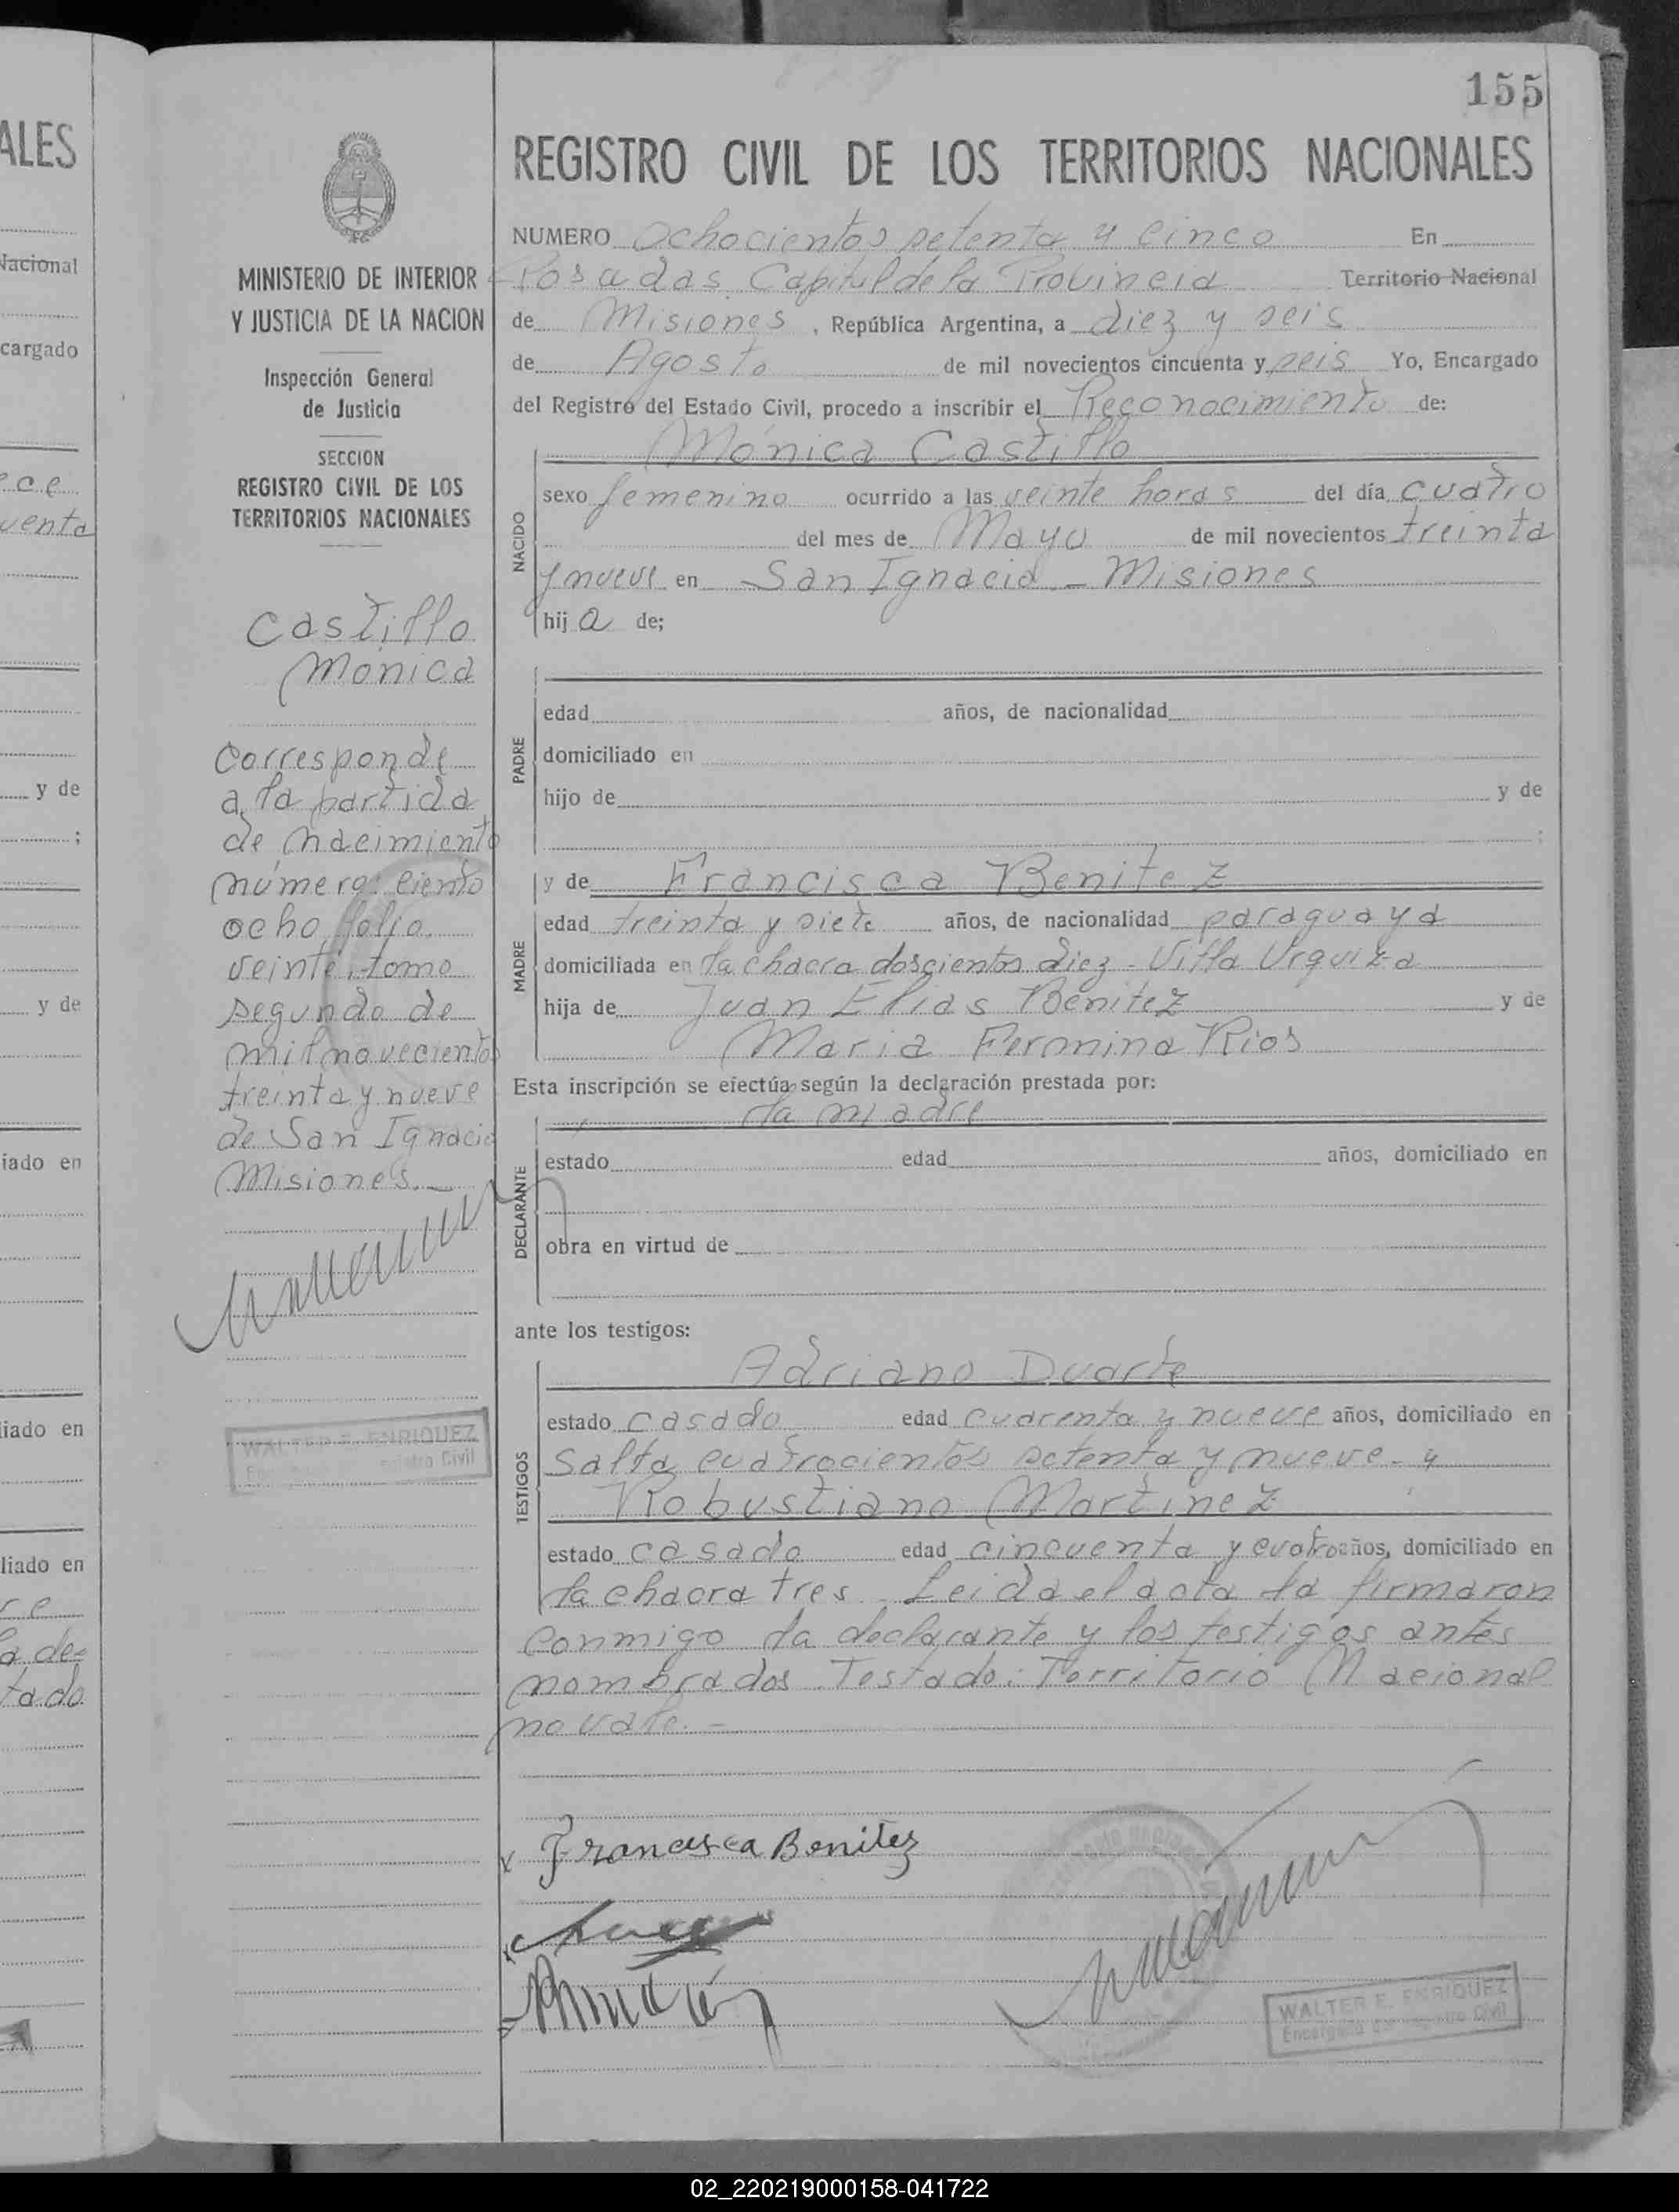 155
REGISTRO CIVIL DE LOS TERRITORIOS NACIONALES
NUMERO Ochocientos setenta y cinco En
Posadas Capital de la Provincia Territorio Nacional
de Misiones, República Argentina, a diez y seis
de Agosto de mil novecientos cincuenta y seis Yo, Encargado
del Registro del Estado Civil, procedo a inscribir el Reconocimiento de:
Mónica Castillo
NACIDO
sexo femenino ocurrido a las veinte horas del día cuatro
del mes de Mayo de mil novecientos treinta
y nueve en San Ignacio - Misiones
hij a de;
PADRE
edad años, de nacionalidad
domiciliado en
hijo de y de
;
y de Francisca Benitez
MADRE
edad treinta y siete años, de nacionalidad paraguaya
domiciliada en la chacra doscientos diez - Villa Urquiza
hija de Juan Elias Benitez y de
Maria Fermina Rios
Esta inscripción se efectúa según la declaración prestada por:
la madre
DECLARANTE
estado edad años, domiciliado en
obra en virtud de
ante los testigos:
Adriano Duarte
TESTIGOS
estado casado edad cuarenta y nueve años, domiciliado en
Salta cuatrocientos setenta y nueve - y
Robustiano Martinez
estado casado edad cincuenta y cuatro años, domiciliado en
la chacra tres. Leida el acta la firmaron
conmigo la declarante y los testigos antes
nombrados. Testado: Territorio Nacional
no vale. -
x Francisca Benitez
WALTER E. ENRIQUEZ
Encargado del Registro Civil
MINISTERIO DE INTERIOR
Y JUSTICIA DE LA NACION
Inspección General
de Justicia
SECCION
REGISTRO CIVIL DE LOS
TERRITORIOS NACIONALES
Castillo
Monica
Corresponde
a la partida
de nacimiento
número: ciento
ocho folio
veinte, tomo
segundo de
mil novecientos
treinta y nueve
de San Ignacio
Misiones. -
WALTER E. ENRIQUEZ
Registro Civil
ALES
Nacional
cargado
y de
;
y de
iado en
liado en
liado en
a de=
tado
02_220219000158-041722